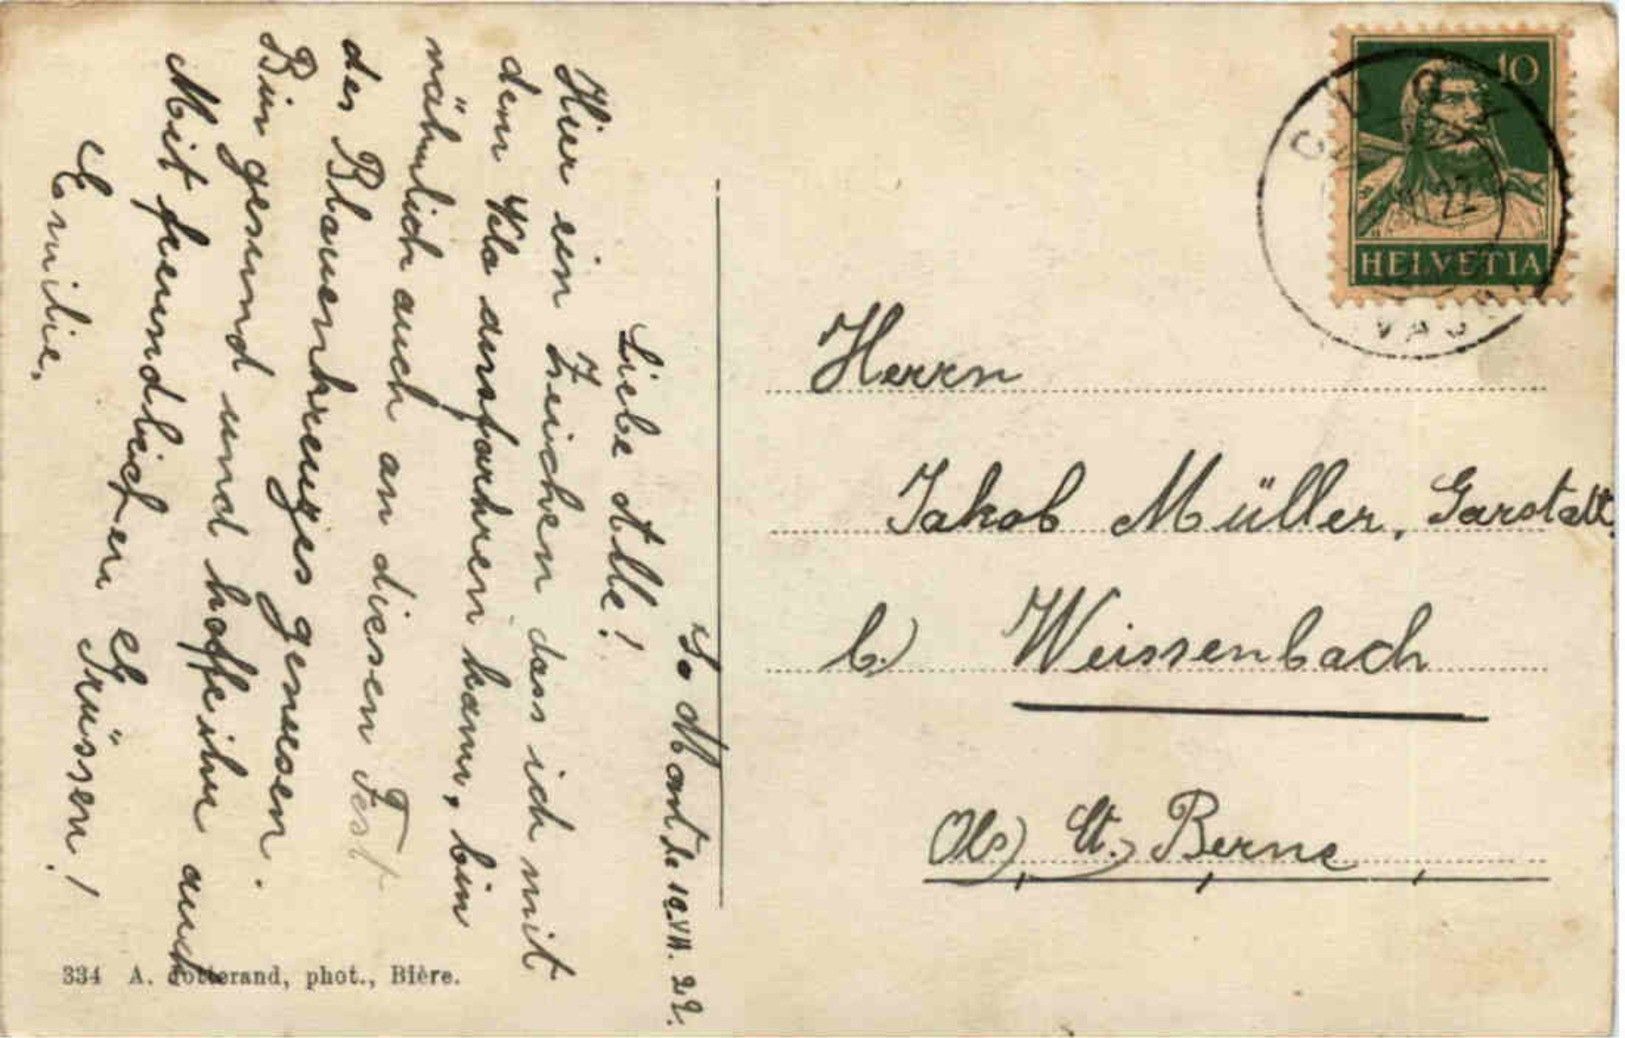 So Mont, le 19. VII. 22.
Liebe Alle!
Hier ein Zeichen dass ich mit
dem Velo ausfahren kann, bin
nähmlich auch an diesen Fest
des Blauenkreuzes gewesen.
Bin gesund und hoffe ihr auch
Mit freundlichen Grüssen!
Emilie.
334 A. Jotterand, phot., Bière.
10
HELVETIA
22
Herrn
Jakob Müller, Garstatt.
b) Weissenbach
Ct. Berne